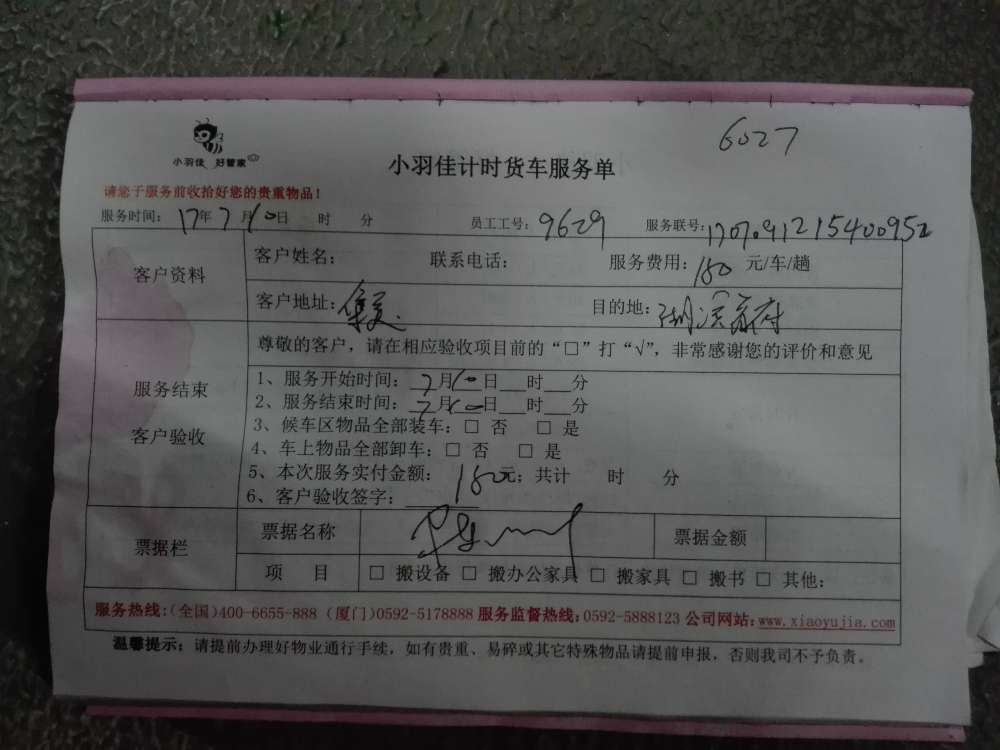 6027
小羽佳 好管家
小羽佳计时货车服务单
请您于服务前收拾好您的贵重物品！
服务时间：17年7月10日 时 分 员工工号：9629 服务联号：1707091215400952
客户资料
客户姓名： 联系电话： 服务费用：180 元/车/趟
客户地址：集美 目的地：湖滨
服务结束
客户验收
尊敬的客户，请在相应验收项目前的“□”打“√”，非常感谢您的评价和意见
1、服务开始时间：7月10日___时___分
2、服务结束时间：7月10日___时___分
3、候车区物品全部装车：□ 否 □ 是
4、车上物品全部卸车：□ 否 □ 是
5、本次服务实付金额：180元；共计 时 分
6、客户验收签字：
票据栏
票据名称 票据金额
项 目 □ 搬设备 □ 搬办公家具 □ 搬家具 □ 搬书 □ 其他：
服务热线：（全国）400-6655-888（厦门）0592-5178888 服务监督热线：0592-5888123 公司网站：www.xiaoyujia.com
温馨提示：请提前办理好物业通行手续，如有贵重、易碎或其它特殊物品请提前申报，否则我司不予负责。